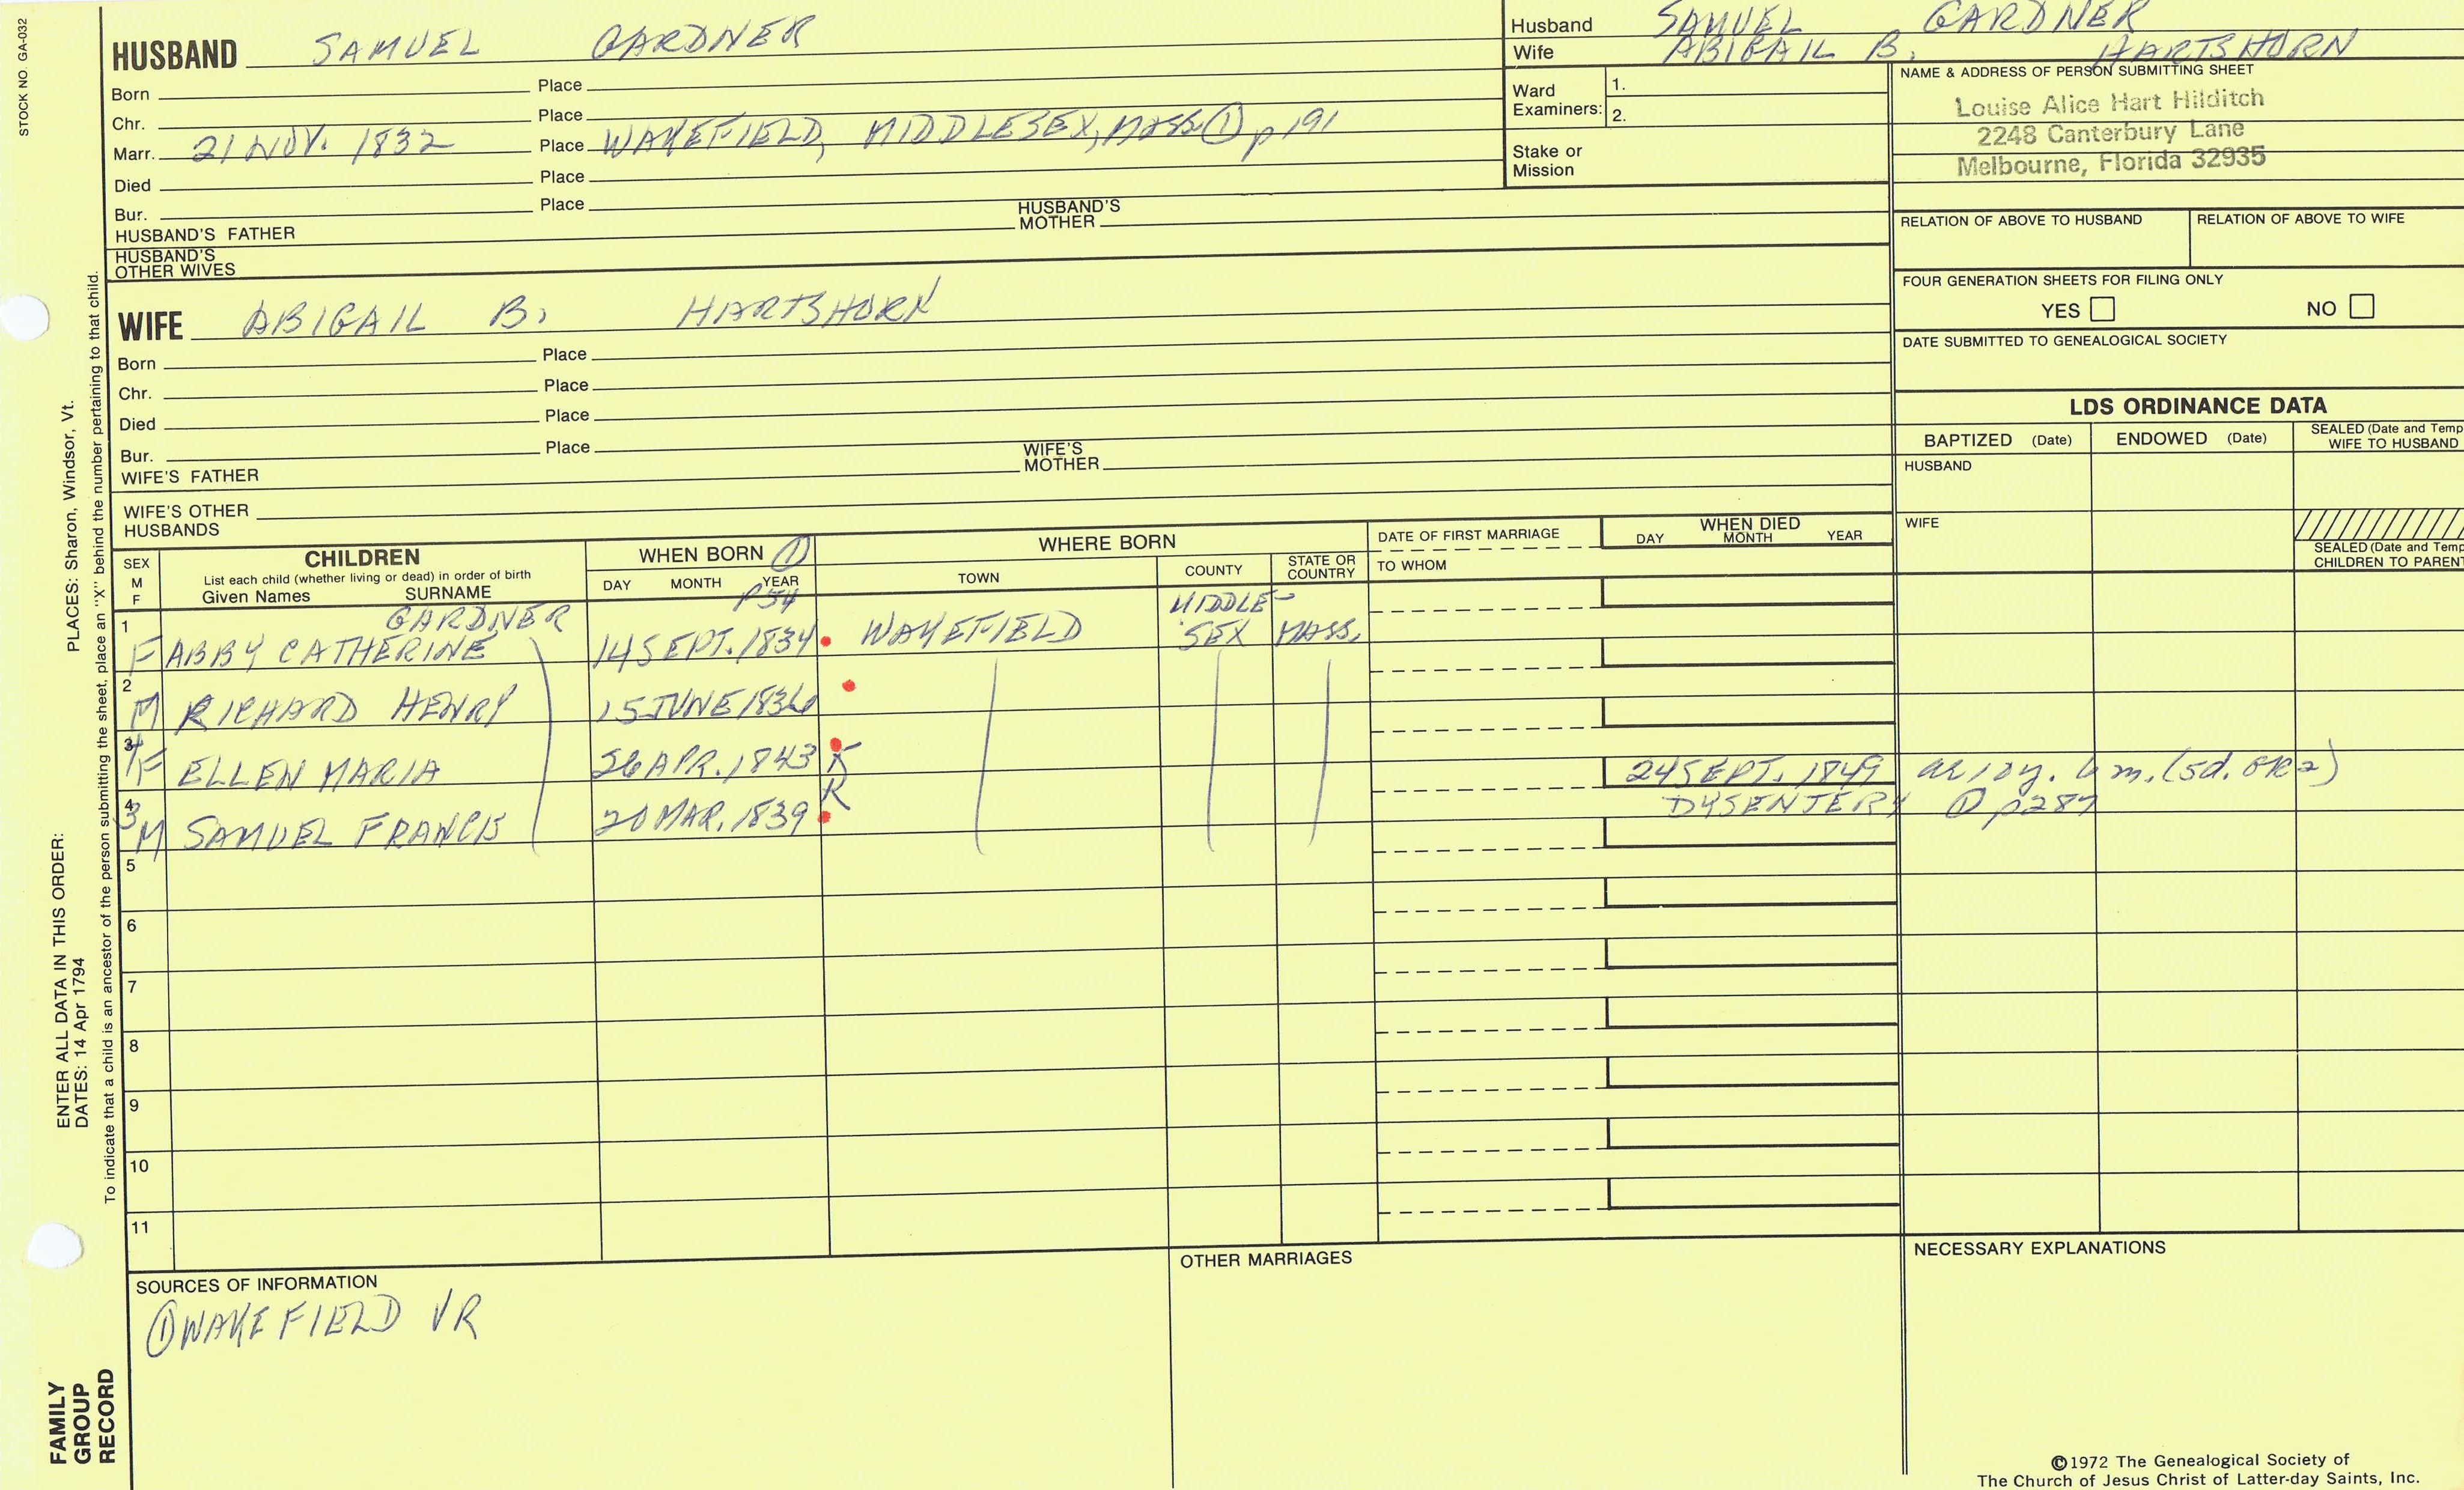 STOCK NO. GA-032
HUSBAND SAMUEL GARDNER
Born Place
Chr. Place
Marr. 21 NOV. 1832 Place WAKEFIELD, MIDDLESEX, MASS ① p 191
Died Place
Bur. Place
HUSBAND'S FATHER HUSBAND'S MOTHER
HUSBAND'S OTHER WIVES
WIFE ABIGAIL B. HARTSHORN
Born Place
Chr. Place
Died Place
Bur. Place
WIFE'S FATHER WIFE'S MOTHER
WIFE'S OTHER HUSBANDS
Husband SAMUEL GARDNER
Wife ABIGAIL B. HARTSHORN
Ward Examiners: 1.
2.
Stake or Mission
NAME & ADDRESS OF PERSON SUBMITTING SHEET
Louise Alice Hart Hilditch
2248 Canterbury Lane
Melbourne, Florida 32935
RELATION OF ABOVE TO HUSBAND RELATION OF ABOVE TO WIFE
FOUR GENERATION SHEETS FOR FILING ONLY
YES NO
DATE SUBMITTED TO GENEALOGICAL SOCIETY
LDS ORDINANCE DATA
BAPTIZED (Date) ENDOWED (Date) SEALED (Date and Temp
WIFE TO HUSBAND
HUSBAND
WIFE
SEALED (Date and Temp
CHILDREN TO PARENT
SEX M F
CHILDREN
List each child (whether living or dead) in order of birth
Given Names SURNAME
WHEN BORN ①
DAY MONTH YEAR
P54
WHERE BORN
TOWN COUNTY STATE OR COUNTRY
DATE OF FIRST MARRIAGE
TO WHOM
WHEN DIED
DAY MONTH YEAR
GARDNER
1 F ABBY CATHERINE 14 SEPT. 1834 WAKEFIELD MIDDLE-SEX MASS.
2 M RICHARD HENRY 15 JUNE 1836
3 4 F ELLEN MARIA 26 APR. 1843 24 SEPT. 1849
DYSENTERY ① p287
4 3 M SAMUEL FRANCIS 20 MAR. 1839
5
6
7
8
9
10
11
SOURCES OF INFORMATION
① WAKEFIELD VR
OTHER MARRIAGES
NECESSARY EXPLANATIONS
©1972 The Genealogical Society of
The Church of Jesus Christ of Latter-day Saints, Inc.
PLACES: Sharon, Windsor, Vt.
ENTER ALL DATA IN THIS ORDER:
DATES: 14 Apr 1794
To indicate that a child is an ancestor of the person submitting the sheet, place an "X" behind the number pertaining to that child.
FAMILY
GROUP
RECORD